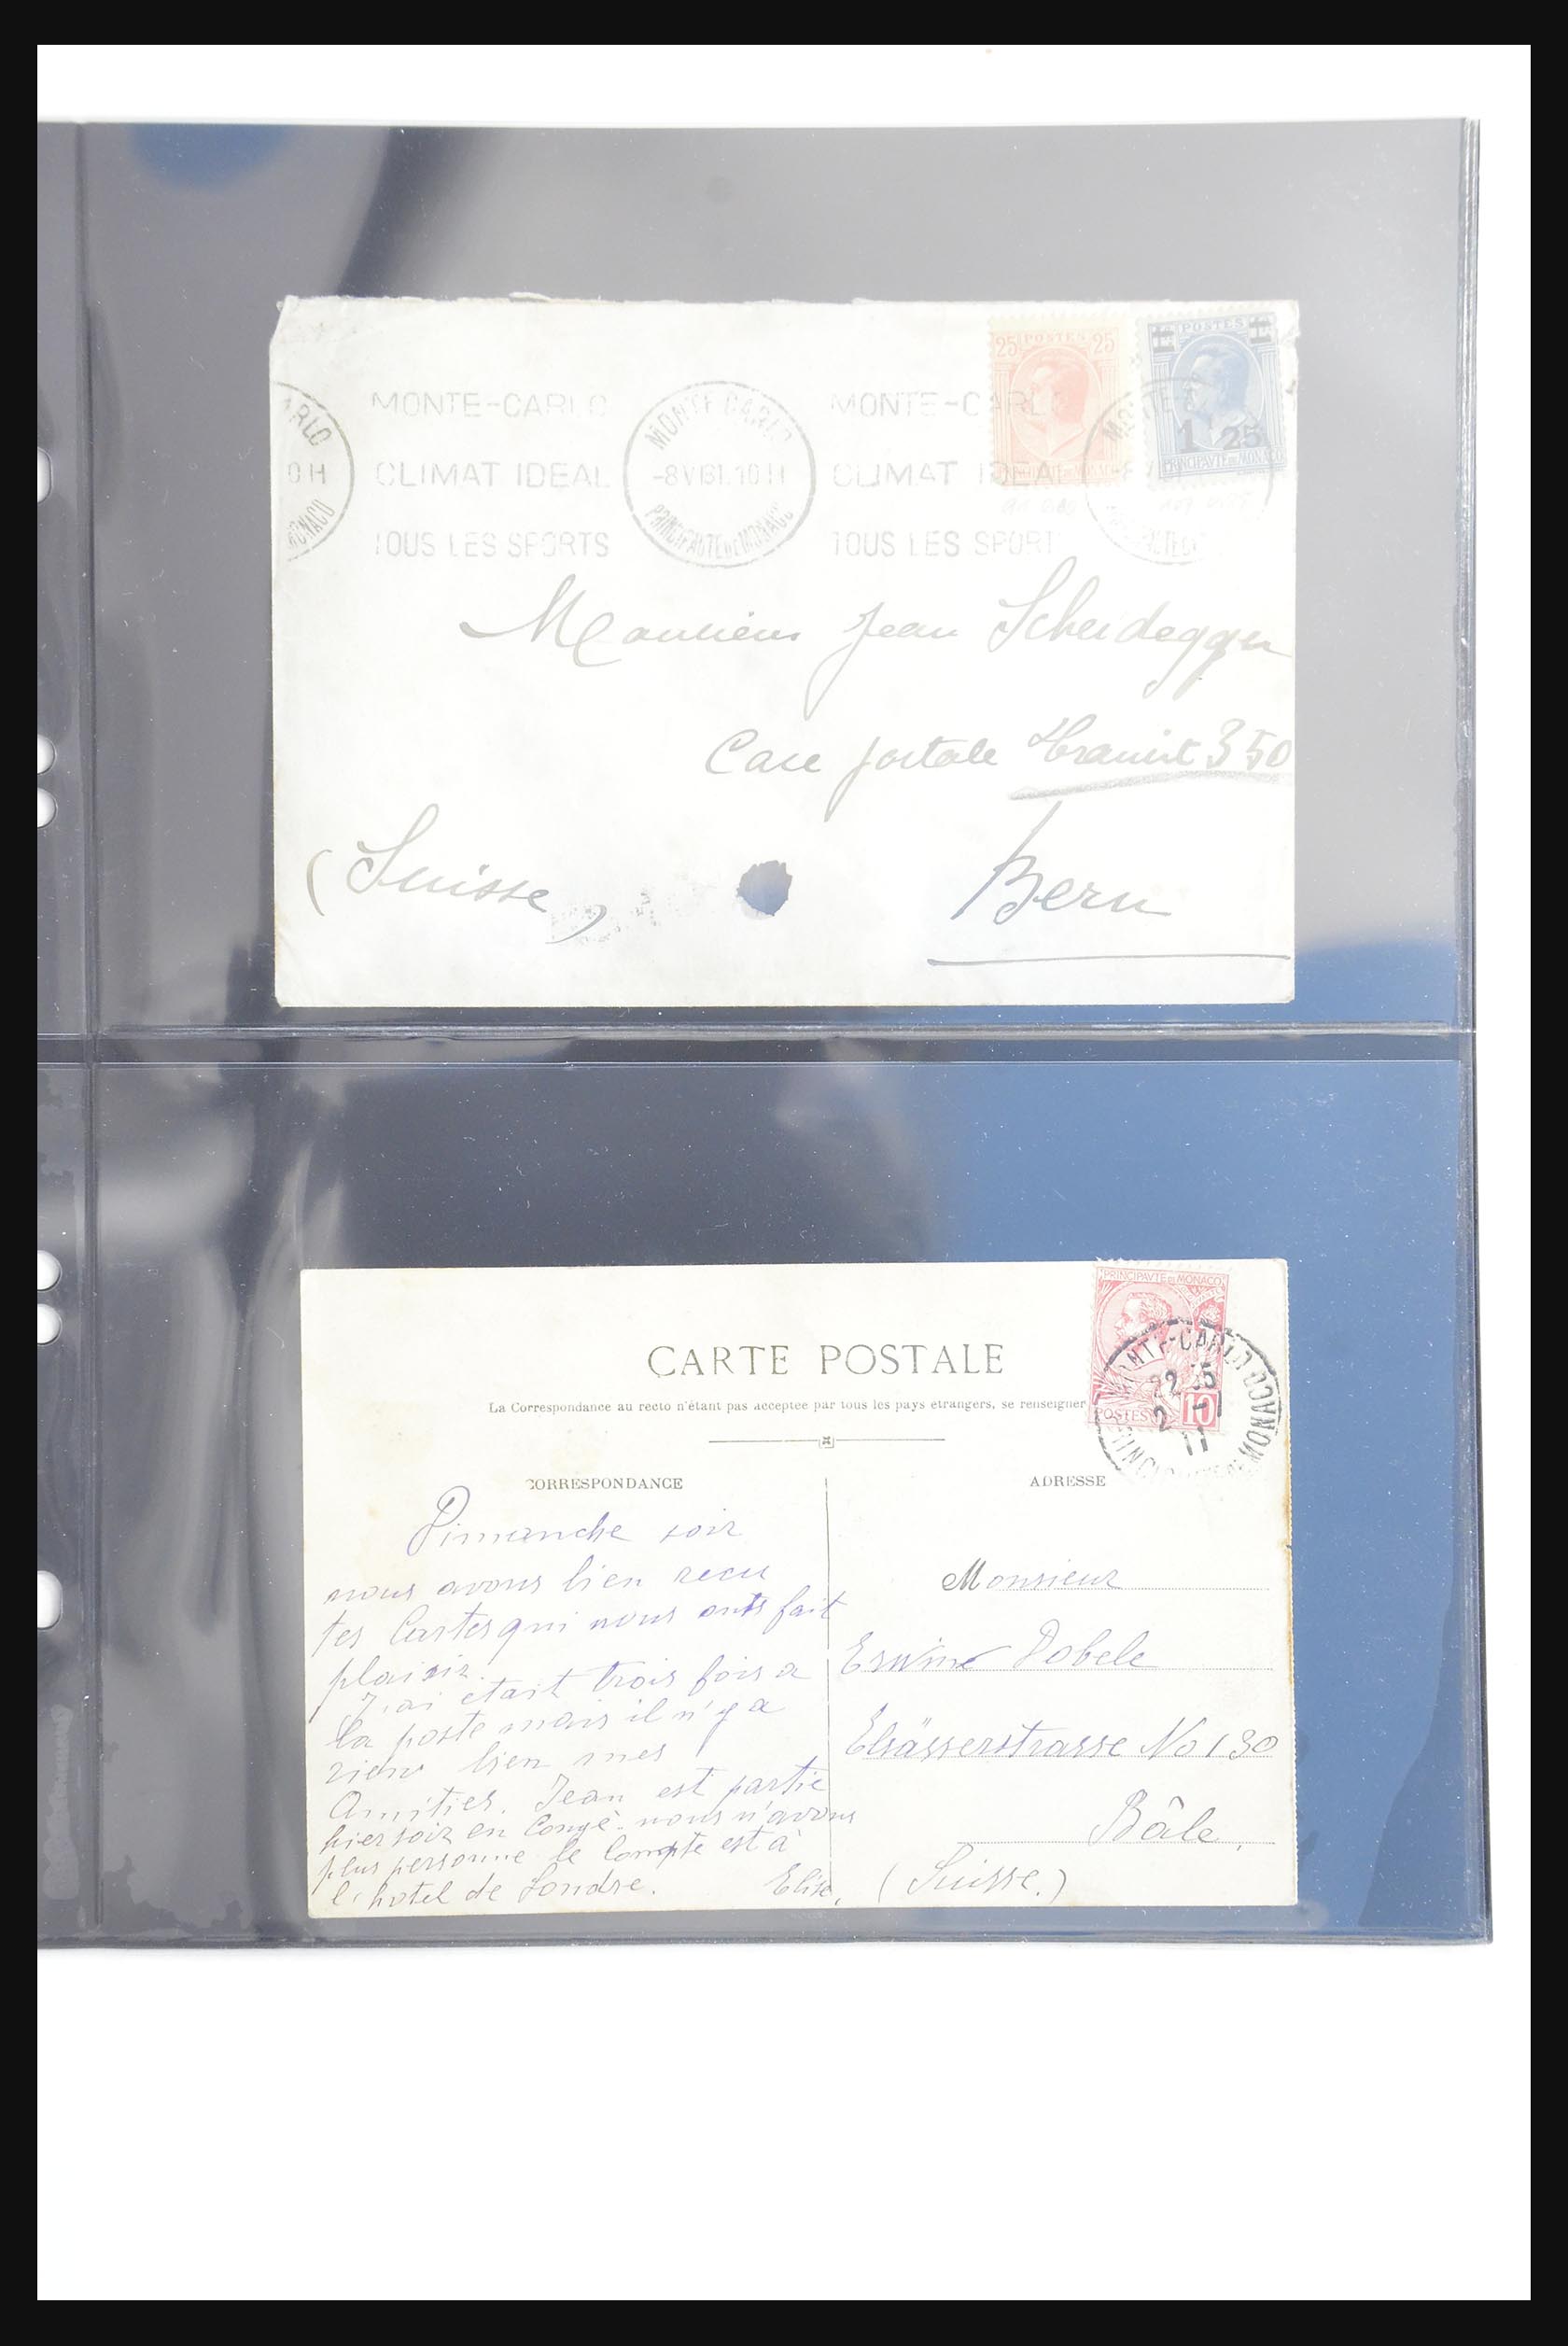 MONTE-CARLO
CLIMAT IDEAL
TOUS LES SPORTS
ARLO
0 H
MONACO
MONTE CARLO
-8 VI 31. 10 H
PRINCIPAUTE DE MONACO
MONTE-CARLO
CLIMAT IDEAL
TOUS LES SPORT
25 POSTES 25
POSTES
1 25
PRINCIPAVTE DE MONACO
Monsieur Jean Scheidegger
Case postale Transit 350
(Suisse)
Bern
PRINCIPAVTE DE MONACO
POSTES 10
MONTE-CARLO
22 15
2 -1
11
MONACO
CARTE POSTALE
La Correspondance au recto n'étant pas acceptée par tous les pays étrangers, se renseigner
CORRESPONDANCE
ADRESSE
Dimanche soir
nous avons bien recu
tes Cartes qui nous onts fait
plaisir.
J'ai etait trois fois a
la poste mais il n'y a
rien bien mes
Amitiés. Jean est partie
hier soir en Congé. nous n'avons
plus personne le Compte est à
l'hotel de Londre.
Elise.
Monsieur
Erwine Dobele
Elsässerstrasse No 130
Bâle.
(Suisse.)